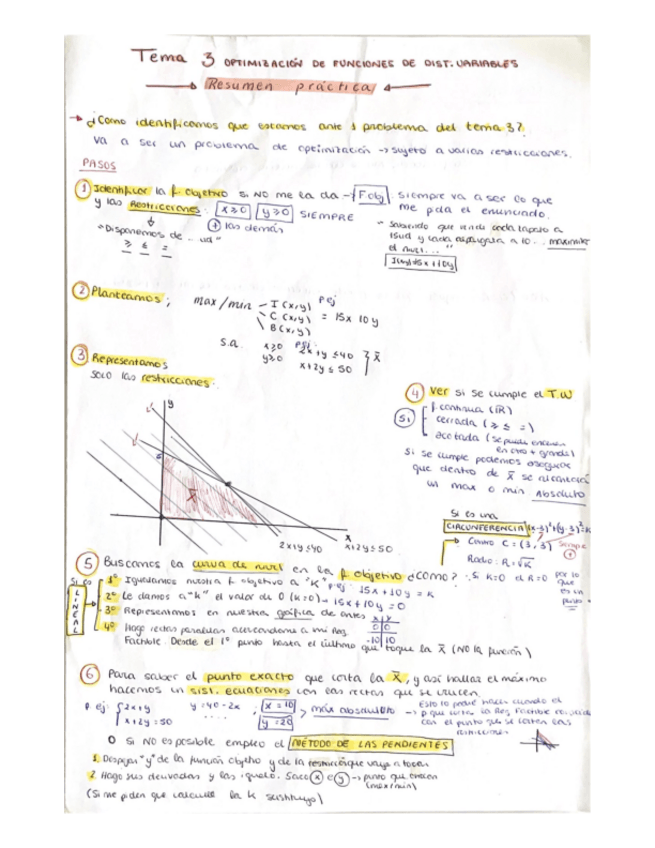 Tema 3 OPTIMIZACIÓN DE FUNCIONES DE DIST. VARIABLES
Resumen práctica
¿Como identificamos que estamos ante 1 problema del tema 3?
Va a ser un problema de optimización → sujeto a varias restricciones.
PASOS
① Identificar la f. objetivo si NO me la da → F obj. siempre va a ser lo que
me pida el enunciado.
y las Restricciones. x≥0 y≥0 SIEMPRE
+ las demás
"Disponemos de .. ud"
≥ ≤ =
"Sabiendo que vende cada
15ud y cada a 10... maximice
el nivel..."
I(x,y)=15x+10y
② Planteamos;
max/min
I(x,y) p.ej
C(x,y) = 15x 10y
B(x,y)
s.a.
x≥0 p.ej:
y≥0 2x+y≤40
x+2y≤50
x̄
③ Representamos
solo las restricciones.
y
x̄
x
2x+y≤40
x+2y≤50
④ Ver si se cumple el T.W
Si
f. continua (ℝ)
cerrada (≥ ≤ =)
acotada (se puede encerrar
en otro + grande)
Si se cumple podemos asegurar
que dentro de x̄ se alcanzará
un max o min ABSOLUTO
Si es una
CIRCUNFERENCIA (x-3)²+(y-3)²=K
Centro C=(3,3) siempre
+
Radio: R=√K
Si K=0 el R=0 por lo
que
es un
punto
⑤ Buscamos la curva de nivel en la f. objetivo ¿Cómo?
Si es
LINEAL
1º Igualamos nuestra f. objetivo a "K" p.ej: 15x+10y=K
2º Le damos a "k" el valor de 0 (k=0) → 15x+10y=0
3º Representamos en nuestra gráfica de antes
x y
0 0
-10
4º Hago rectas paralelas acercandome a mi Reg.
Factible. Desde el 1º punto hasta el último que toque la x̄ (NO la función)
⑥ Para saber el punto exacto que corta la x̄, y así hallar el máximo
hacemos un sist. ecuaciones con las rectas que se crucen.
p.ej: 2x+y y=40-2x x=10
x+2y=50 .... y=20
máx absoluto
Esto lo podré hacer cuando el
p. que corta la Reg. Factible
con el punto que se corten las
restricciones
O si NO es posible empleo el MÉTODO DE LAS PENDIENTES
1. Despejar "y" de la función objetivo y de la restricción que vaya a tocar
2. Hago sus derivadas y las igualo. Saco x e y → punto que crucen
(max/min)
(Si me piden que calcule la k sustituyo)